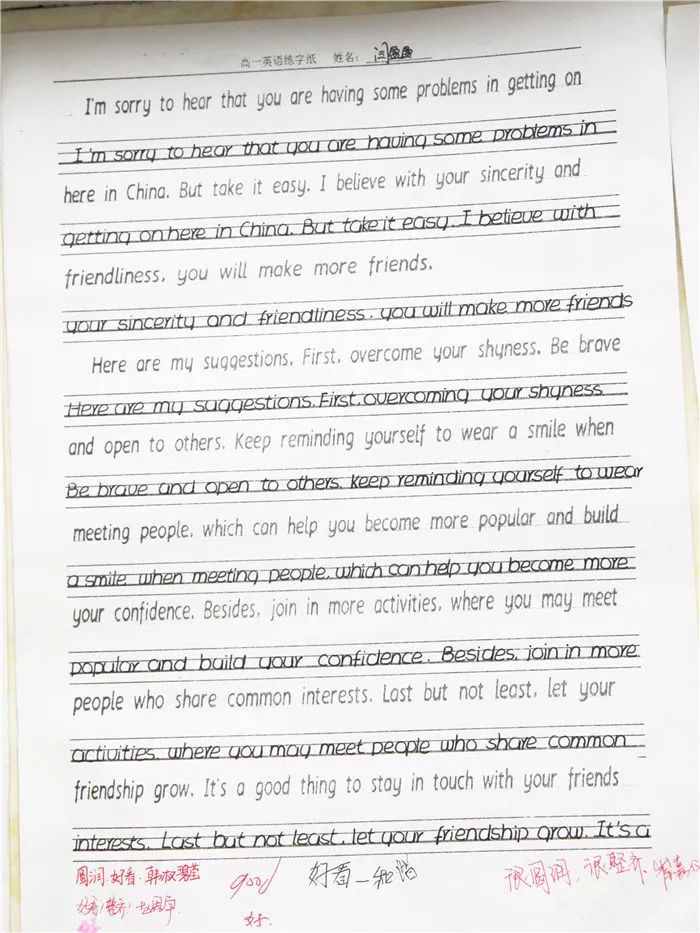 高一英语练字纸 姓名：闫圆圆
I'm sorry to hear that you are having some problems in getting on
I'm sorry to hear that you are having some problems in
here in China. But take it easy. I believe with your sincerity and
getting on here in China. But take it easy. I believe with
friendliness, you will make more friends.
your sincerity and friendliness, you will make more friends
Here are my suggestions. First, overcome your shyness. Be brave
Here are my suggestions. First, overcoming your shyness
and open to others. Keep reminding yourself to wear a smile when
Be brave and open to others. Keep reminding yourself to wear
meeting people, which can help you become more popular and build
a smile when meeting people, which can help you become more
your confidence. Besides, join in more activities, where you may meet
popular and build your confidence. Besides, join in more
people who share common interests. Last but not least, let your
activities, where you may meet people who share common
friendship grow. It's a good thing to stay in touch with your friends
interests. Last but not least, let your friendship grow. It's a
圆润.好看. good 好看一
很圆润, 很整齐.
好看!整齐! 好.